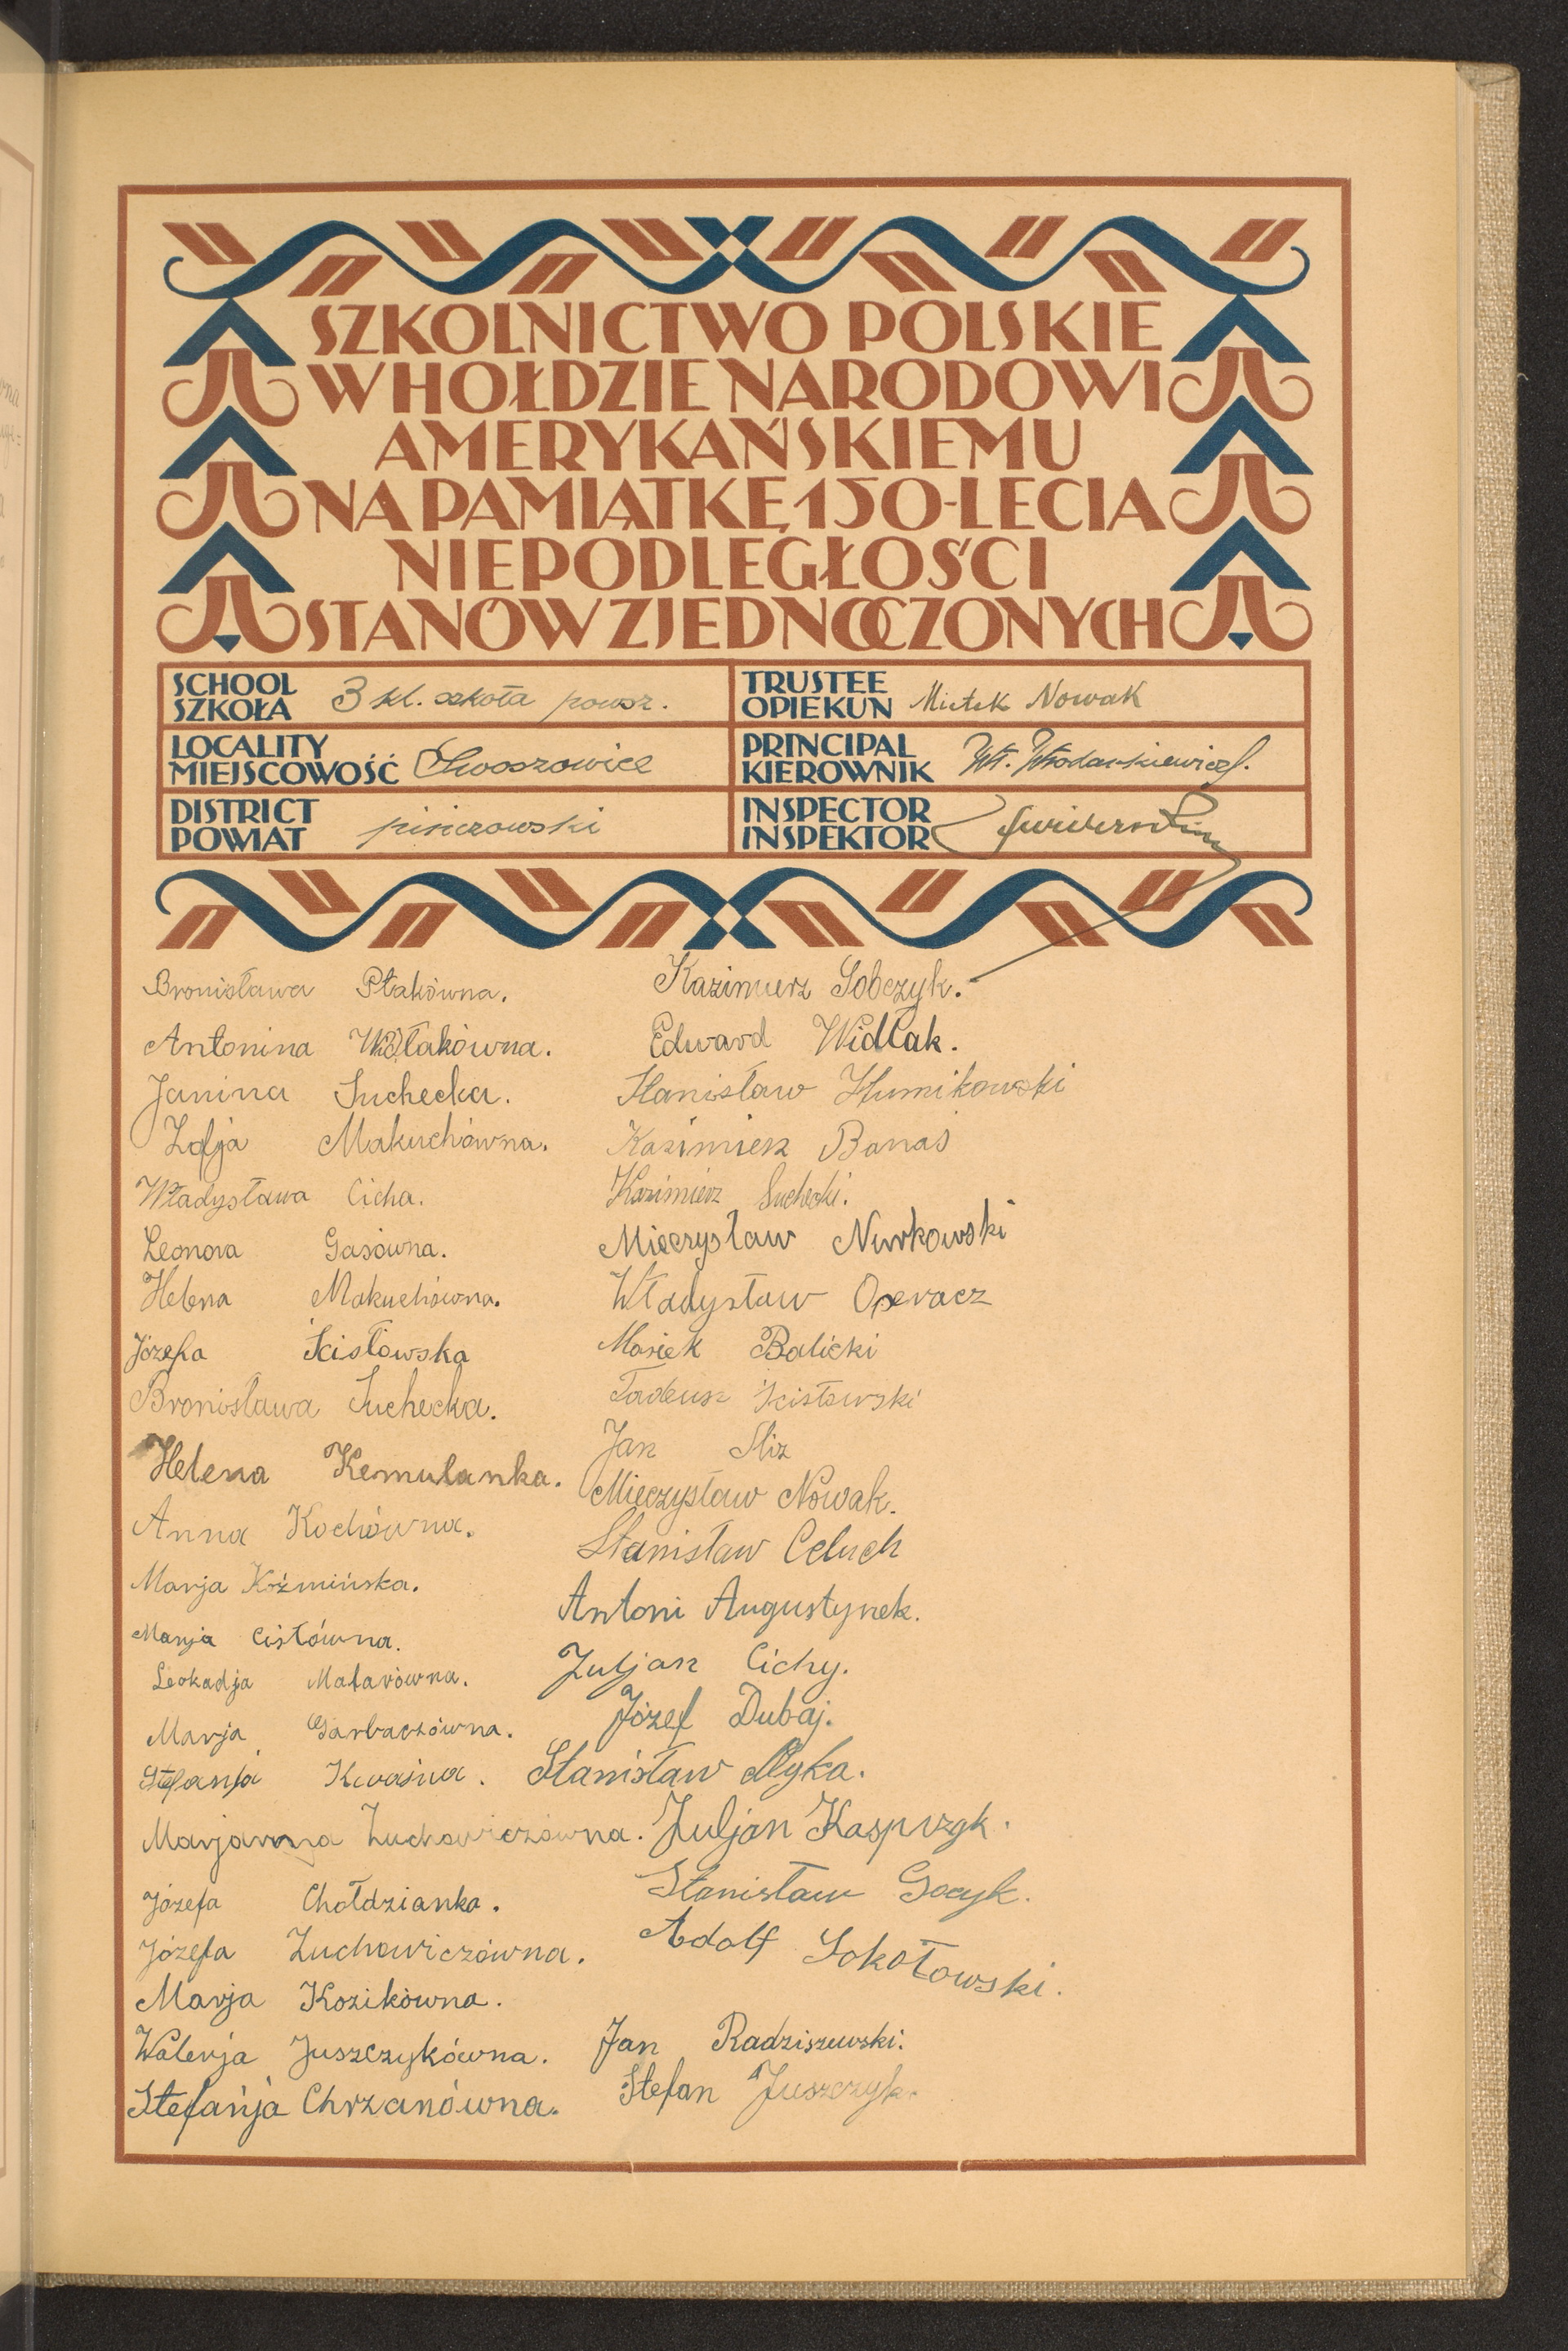 SZKOLNICTWO POLSKIE
W HOŁDZIE NARODOWI
AMERYKAŃSKIEMU
NA PAMIĄTKĘ 150-LECIA
NIEPODLEGŁOŚCI
STANÓW ZJEDNOCZONYCH
SCHOOL
SZKOŁA
3 kl. szkoła powsz.
TRUSTEE
OPIEKUN
Mietek Nowak
LOCALITY
MIEJSCOWOŚĆ
PRINCIPAL
KIEROWNIK
Wł.
DISTRICT
POWIAT
pińczowski
INSPECTOR
INSPEKTOR
Bronisława Ptakówna.
Antonina Widłakówna.
Janina Suchecka.
Zofja Makuchówna.
Władysława Cicha.
Leonora Gasówna.
Helena Makuchówna.
Józefa Ścisłowska
Bronisława Suchecka.
Helena Kemulanka.
Anna Kochówna.
Marja Koźmińska.
Marja Cisłówna.
Leokadja Matarówna.
Marja Garbaczówna.
Stefanja Kwaśna.
Marjanna Zuchowiczówna.
Józefa Chołdzianka.
Józefa Zuchowiczówna.
Marja Kozikówna.
Walerja Juszczykówna.
Stefańja Chrzanówna.
Kazimierz Sobczyk.
Edward Widłak.
Stanisław Słumikowski
Kazimierz Banaś
Kazimierz Suchecki.
Mieczysław Nurkowski
Władysław Operacz
Mariek Balicki
Tadeusz Ścisłowski
Jan Śliz
Mieczysław Nowak.
Stanisław Celuch
Antoni Augustynek.
Juljan Cichy.
Józef Dubaj.
Stanisław Myka.
Juljan Kasprzyk.
Stanisław Gocyk.
Adolf Sokołowski.
Jan Radziszewski.
Stefan Juszczyk.